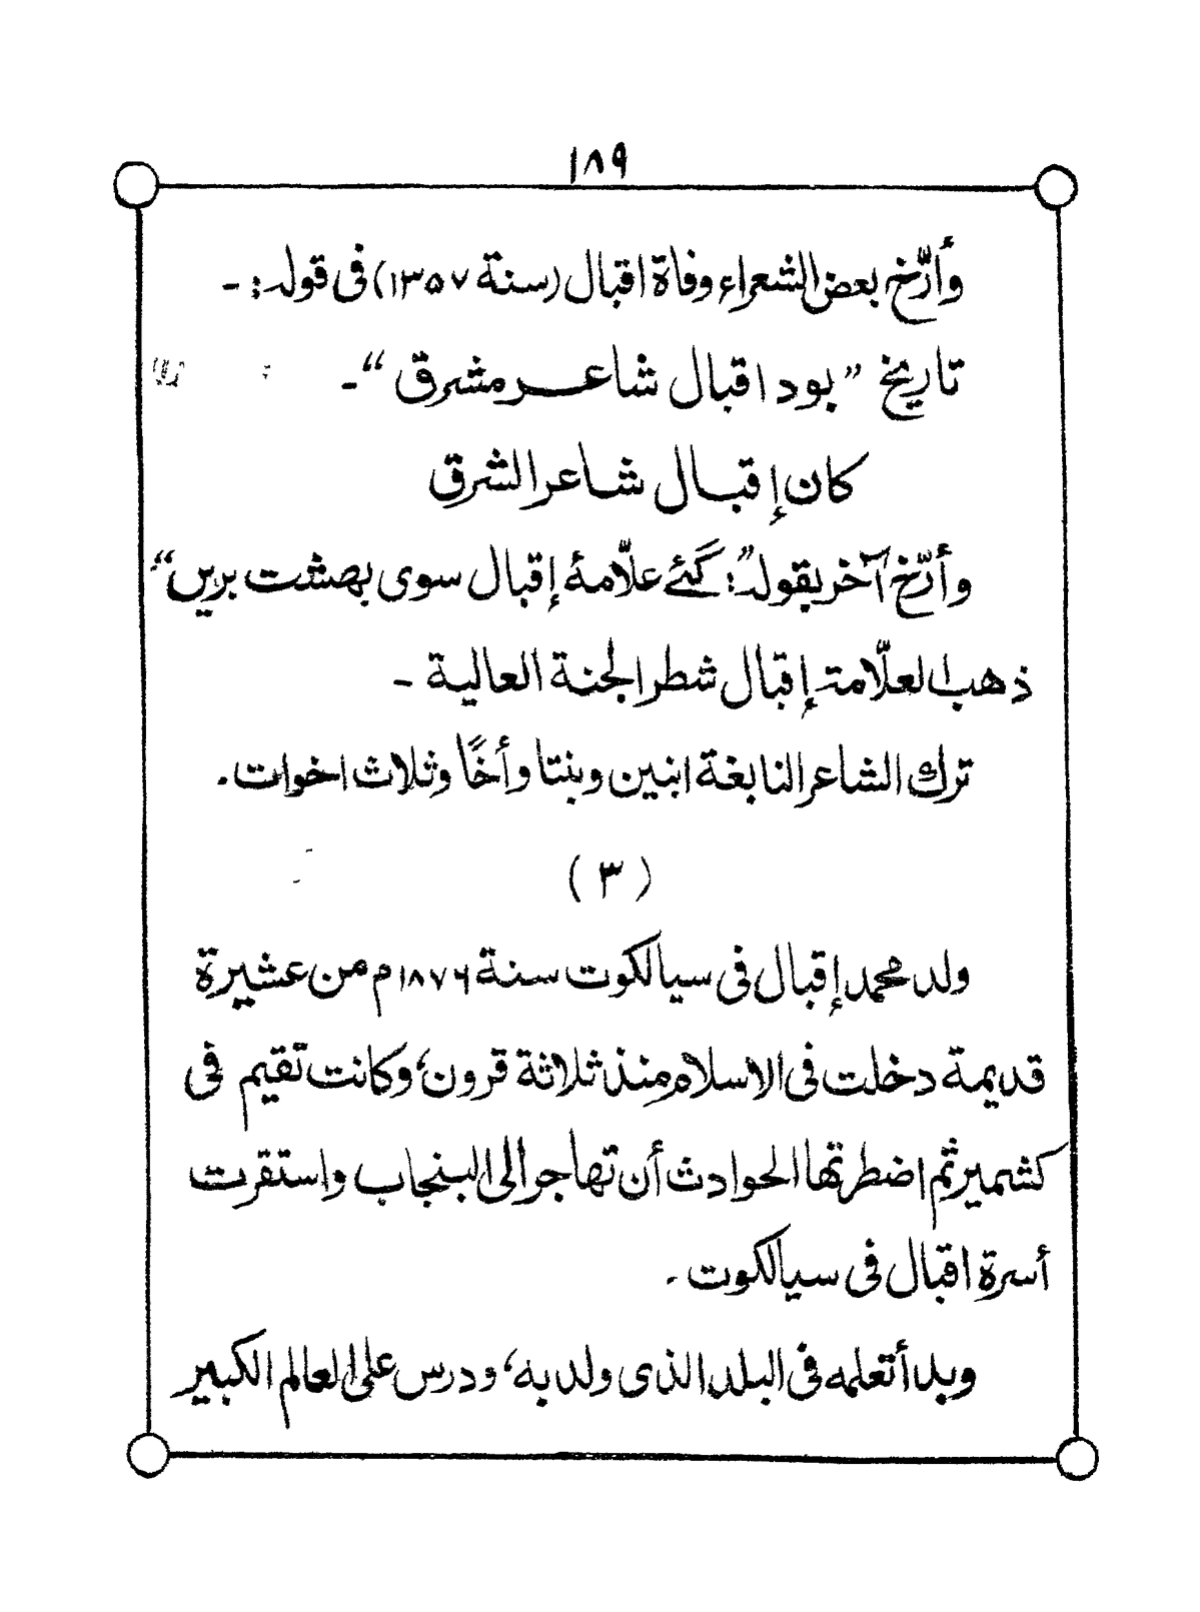 ١٨٩
وأرّخ بعض الشعراء وفاة اقبال (سنة ١٣٥٧) فى قوله: -
تاريخ ”بود اقبال شاعر مشرق“ -
كان إقبال شاعر الشرق
وأرّخ آخر بقوله:”گئے علّامۂ إقبال سوى بهشت بريں“
ذهب العلّامة إقبال شطر الجنة العالية -
ترك الشاعر النابغة ابنين وبنتا وأخًا وثلاث اخوات.
(٣)
ولد محمد إقبال فى سيالكوت سنة ١٨٧٦م من عشيرة
قديمة دخلت فى الاسلام منذ ثلاثة قرون، وكانت تقيم فى
كشمير ثم اضطرتها الحوادث أن تهاجر الى البنجاب واستقرت
أسرة اقبال فى سيالكوت.
وبدأ تعلمه فى البلد الذى ولد به، ودرس على العالم الكبير